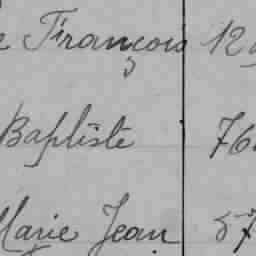 François 12
Baptiste 76
Marie Jean 57